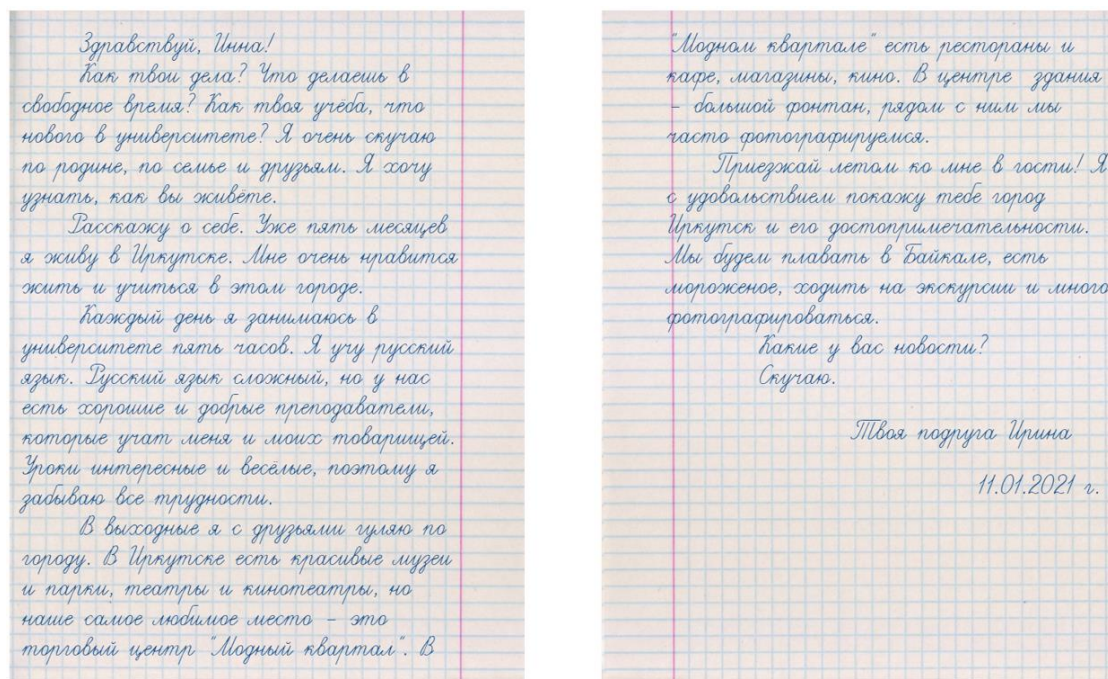 Здравствуй, Инна!
Как твои дела? Что делаешь в
свободное время? Как твоя учёба, что
нового в университете? Я очень скучаю
по родине, по семье и друзьям. Я хочу
узнать, как вы живёте.
Расскажу о себе. Уже пять месяцев
я живу в Иркутске. Мне очень нравится
жить и учиться в этом городе.
Каждый день я занимаюсь в
университете пять часов. Я учу русский
язык. Русский язык сложный, но у нас
есть хорошие и добрые преподаватели,
которые учат меня и моих товарищей.
Уроки интересные и весёлые, поэтому я
забываю все трудности.
В выходные я с друзьями гуляю по
городу. В Иркутске есть красивые музеи
и парки, театры и кинотеатры, но
наше самое любимое место - это
торговый центр "Модный квартал". В
"Модном квартале" есть рестораны и
кафе, магазины, кино. В центре здания
- большой фонтан, рядом с ним мы
часто фотографируемся.
Приезжай летом ко мне в гости! Я
с удовольствием покажу тебе город
Иркутск и его достопримечательности.
Мы будем плавать в Байкале, есть
мороженое, ходить на экскурсии и много
фотографироваться.
Какие у вас новости?
Скучаю.
Твоя подруга Ирина
11.01.2021 г.